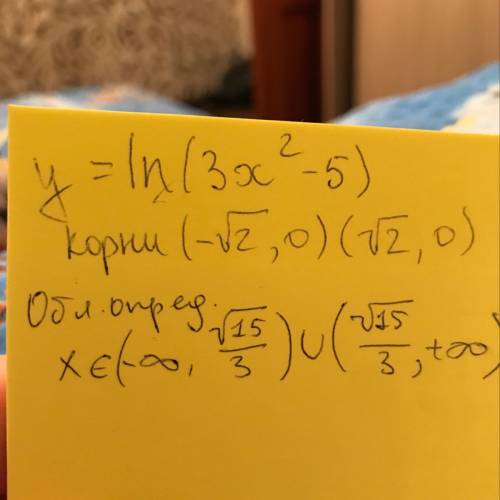 y = ln(3x² - 5)
корни (-√2, 0) (√2, 0)
Обл. опред.
x ∈ (-∞, √15/3) ∪ (√15/3, +∞)